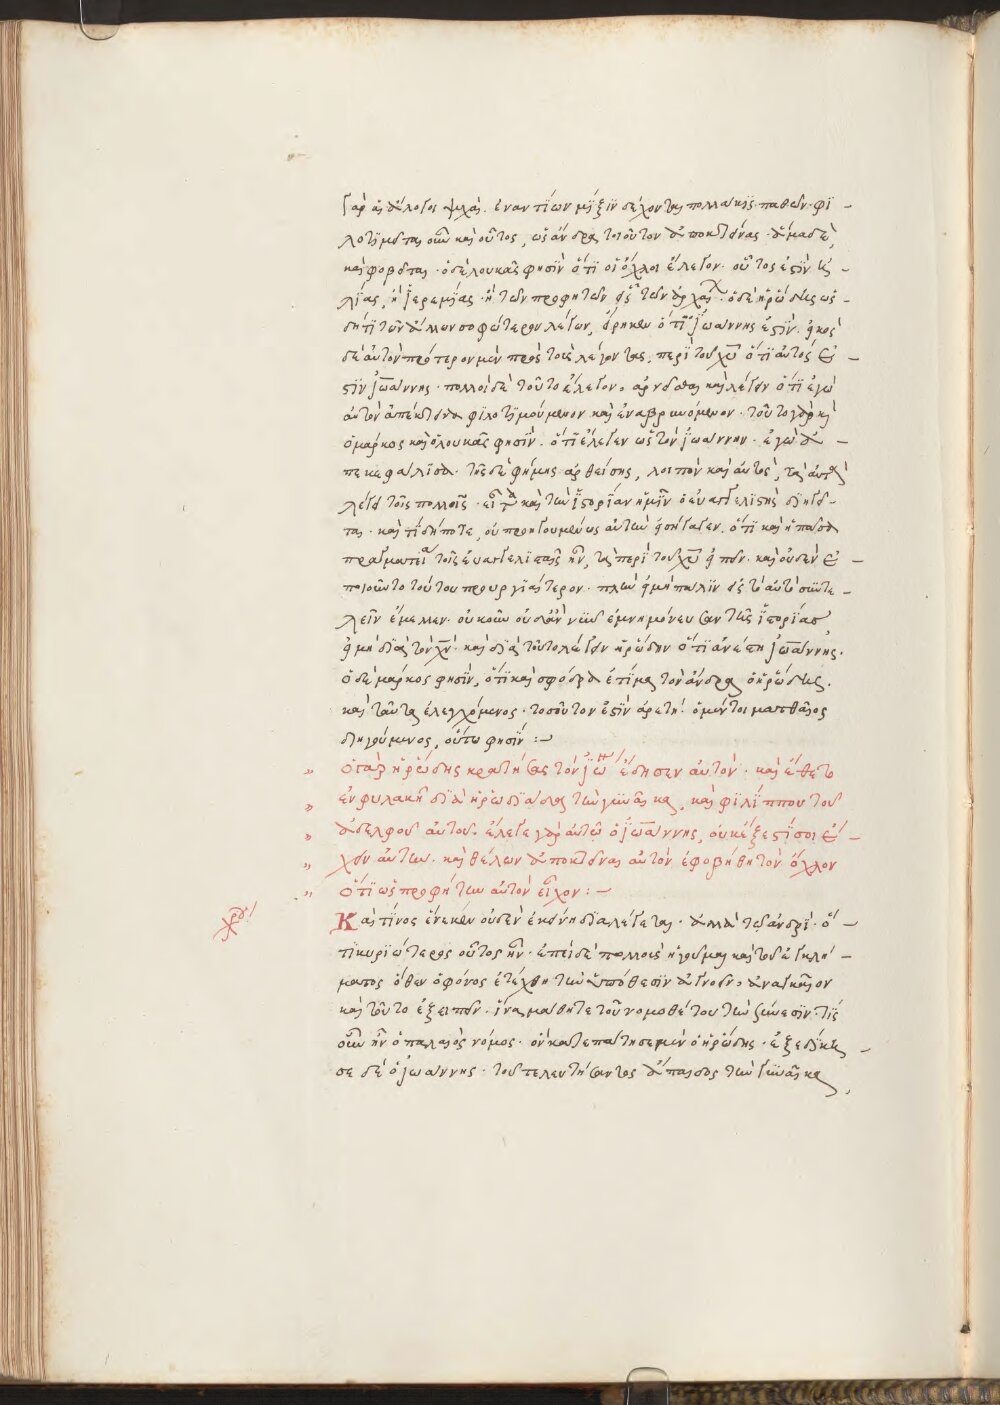 γὰρ αἱ ἄλογοι ψυχαὶ. ἐναντίων μῖξιν δέχονται πολλάκις παθῶν· φι
λοτιμεῖται οὖν καὶ οὗτος, ὡς ἄνδρα τοιοῦτον ἀποκτείνας· ἅμα δὲ,
καὶ φοβεῖται· ὁ δὲ λουκᾶς φησὶν ὅτι οἱ ὄχλοι ἔλεγον· οὗτος ἐστὶν ἠ
λίας, ἢ ἱερεμίας· ἢ τῶν προφητῶν εἷς τῶν ἀρχαί· ὁ δὲ ἡρώδης ὡς
δή τι τῶν ἄλλων σοφώτερον λέγων, εἴρηκεν ὅτι ἰωάννης ἐστὶν· εἰκὸς
δὲ αὐτὸν πρότερον μὲν πρὸς τοὺς λέγοντας, περὶ τοῦ χυ ὅτι αὐτός ἐ
στιν ἰωάννης· πολλοὶ δὲ τοῦτο ἔλεγον, ἀρνεῖσθαι καὶ λέγειν ὅτι ἐγὼ
αὐτὸν ἀπέκτεινα φιλοτιμούμενον καὶ ἐναβρυνόμενον· τοῦτο γὰρ καὶ
ὁ μάρκος καὶ ὁ λουκᾶς φησὶν. ὅτι ἔλεγεν ὡς τὸν ἰωάννην· ἐγὼ ἀ
πεκεφάλισα· τῆς δὲ φήμης ἀρθείσης, λοιπὸν καὶ αὐτὸς, τὰ αὐτὰ
λέγει τοῖς πολλοῖς· εἶτα καὶ τὴν ἱστορίαν ἡμῖν ὁ εὐαγγελιστὴς διηγεῖ
ται· καὶ τί δήποτε, οὐ προηγουμένως αὐτὴν εἰσήγαγεν. ὅτι καὶ ἡ πᾶσα
πραγματεία τοῖς εὐαγγελισταῖς ἦν, τὰ περὶ τοῦ χυ εἰπεῖν· καὶ οὐδὲν ἐ
ποιοῦντο τούτου προυργιαίτερον· πλὴν εἰ μὴ πάλιν εἰς τὸ αὐτὸ συντε
λεῖν ἔμελλεν· οὐκοῦν οὐδ' ἂν νῦν ἐμνημόνευσαν τῆς ἱστορίας,
εἰ μὴ διὰ τὸν χν· καὶ διὰ τὸ λέγειν ἡρώδην ὅτι ἀνέστη ἰωάννης.
ὁ δὲ μάρκος φησὶν, ὅτι καὶ σφόδρα ἐτίμα τὸν ἄνδρα ὁ ἡρώδης.
καὶ ταῦτα ἐλεγχόμενος· τοσοῦτον ἐστὶν ἀρετή. ὁ μέντοι ματθαῖος
διηγούμενος, οὕτω φησίν:
ὁ γὰρ ἡρώδης κρατήσας τὸν ἰω ἔδησεν αὐτὸν· καὶ ἔθετο
ἐν φυλακῇ διὰ ἡρωδιάδα τὴν γυναῖκα, καὶ φιλίππου τοῦ
ἀδελφοῦ αὐτοῦ. ἔλεγε γὰρ αὐτῷ ὁ ἰωάννης, οὐκ ἔξεστι σοι ἔ
χειν αὐτὴν. καὶ θέλων ἀποκτεῖναι αὐτὸν ἐφοβήθη τὸν ὄχλον
ὅτι ὡς προφήτην αὐτὸν εἶχον:
Καὶ τίνος ἕνεκεν οὐδὲν ἐκείνη διαλέγεται· ἀλλὰ τῷ ἀνδρὶ· ὅ
τι κυριώτερος οὗτος ἦν· ἐπειδὲ πολλοὺς ἡγοῦμαι καὶ τοῦ ἐγκλή
ματος ὅθεν ὁ φόνος ἐτέχθη τὴν ὑπόθεσιν ἀγνοεῖν, ἀναγκαῖον
καὶ τοῦτο ἐξειπεῖν. ἵνα μάθητε τοῦ νομοθέτου τὴν σύνεσιν· τίς
οὖν ἦν ὁ παλαιὸς νόμος· ὃν κατεπάτησε μὲν ὁ ἡρώδης· ἐξεδίκη
σε δὲ ὁ ἰωάννης· τοῦ τελευτήσαντος ἄπαιδος τὴν γυναῖκα,